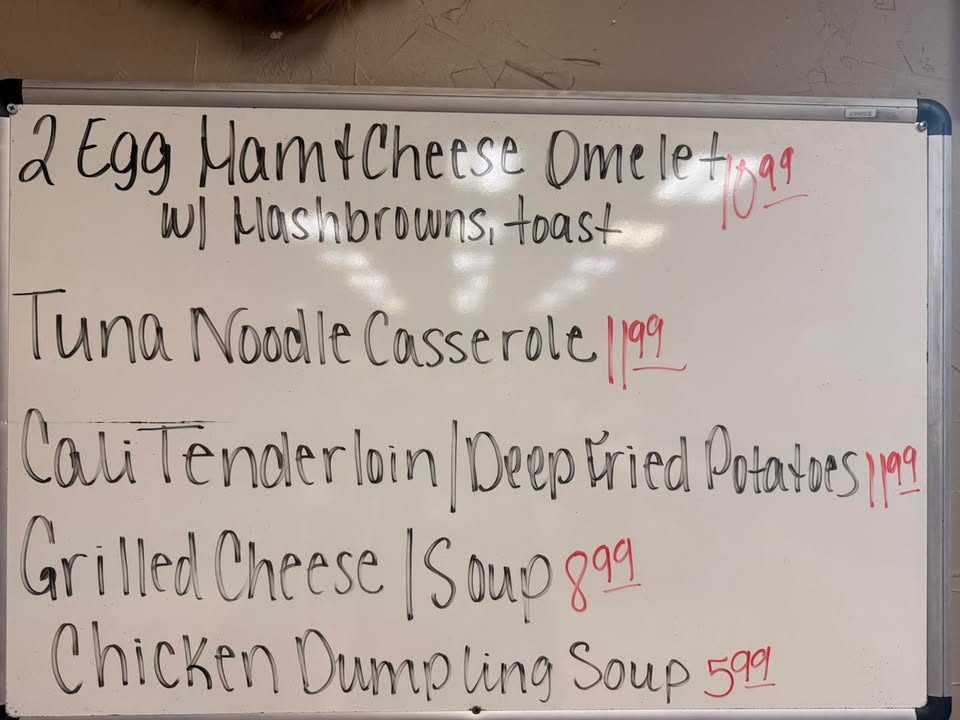 2 Egg Ham & Cheese Omelet 10.99
w/ Hashbrowns, toast
Tuna Noodle Casserole 11.99
Cali Tenderloin / Deep Fried Potatoes 11.99
Grilled Cheese / Soup 8.99
Chicken Dumpling Soup 5.99